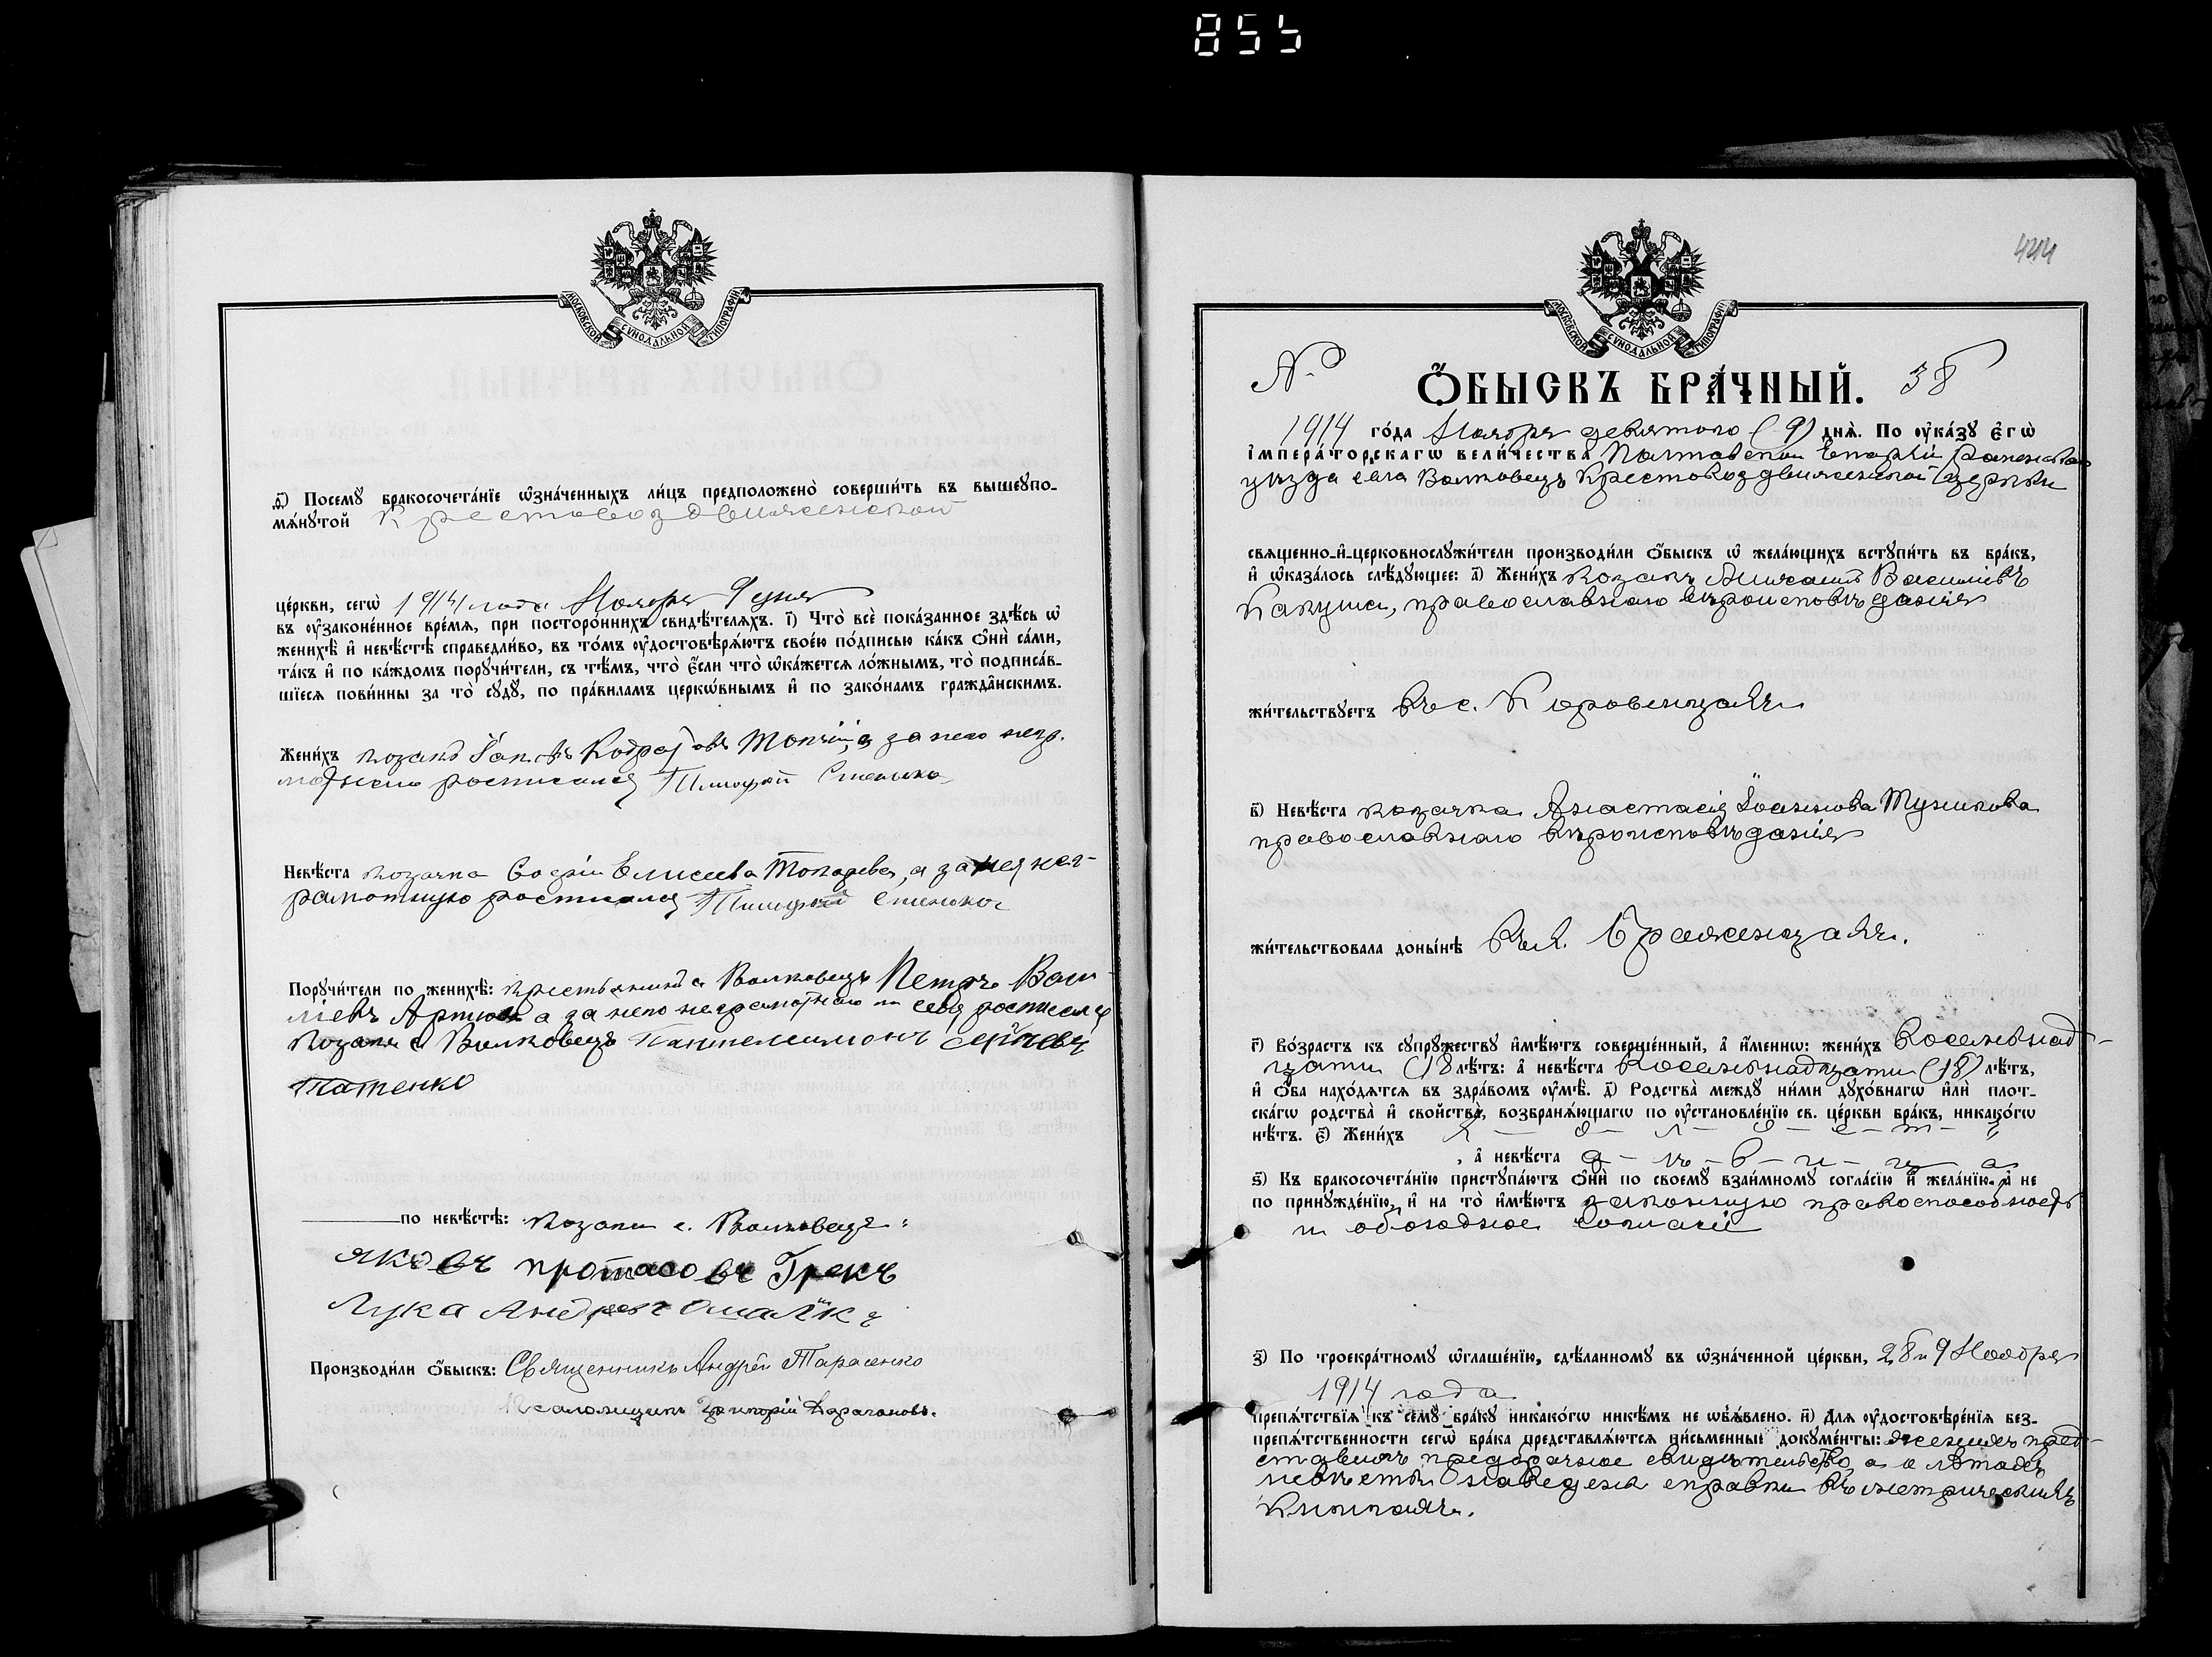 855
МОСКОВСКОЙ СУНОДАЛЬНОЙ ТИПОГРАФІИ
д҃і) Посемꙋ̀ бракосочета́нїе ѡ҆зна́ченныхъ ли́цъ предположено̀ соверши́ть въ вышеꙋпо-
мѧ́нꙋтой Крестовоздвиженской
це́ркви, сегѡ̀ 1914 года Ноября 9 дня
въ ᲂу҆законе́нное вре́мѧ, при посторо́ннихъ свидѣ́телѧхъ. і҃) Что̀ всѐ пока́занное здѣ́сь ѡ҆
женихѣ̀ и҆ невѣ́стѣ справедли́во, въ то́мъ ᲂу҆достовѣрѧ́ютъ свое́ю по́дписью ка́къ ѻ҆нѝ са́ми,
та́къ и҆ по ка́ждомъ порꙋчи́тели, съ тѣ́мъ, что̀ є҆́сли что̀ ѡ҆ка́жетсѧ ло́жнымъ, то̀ подписа́в-
шїесѧ пови́нны за то̀ сꙋдꙋ̀, по пра́виламъ церко́внымъ и҆ по зако́намъ гражда̑нскимъ.
Жени́хъ козакъ Топчій, а за него негр.
мотнего росписался Тимофей
Невѣ́ста козачка Софія Елисеева а за нея нег-
рамотную росписался Тимофей
Порꙋчи́тели по женихѣ̀: крестьянинъ с Волковецъ Петръ Васи-
лiевъ а за него неграмотнаго и себя росписался
козакъ с Волковецъ Пантелеимонъ
Татенко
по невѣ́стѣ: козаки с. Волковецъ:
яковъ протасовъ Грекъ
Лука Андреевъ
Производи́ли ѻ҆́быскъ: Священникъ Андрей Тарасенко
Псаломщикъ Григорій
444
МОСКОВСКОЙ СУНОДАЛЬНОЙ ТИПОГРАФІИ
№ Ѻ҆́БЫСКЪ БРА́ЧНЫЙ. 38
1914 го́да Ноября девятого (9) днѧ̀. По ᲂу҆ка́зꙋ є҆гѡ̀
і҆мпера́торскагѡ вели́чества Полтавской Епархіи Роменскаго
уѣзда села Волковецъ Крестовоздвиженской церкви
свѧщенно-и҆-церковнослꙋжи́тели производи́ли ѻ҆́быскъ ѡ҆ жела́ющихъ встꙋпи́ть въ бра́къ,
и҆ ѡ҆каза́лось слѣ́дꙋющее: а҃) Жени́хъ козакъ Михаилъ Василіевъ
Какуша, православнаго вѣроисповѣданія
жи́тельствꙋетъ въ с. Коровенцахъ
в҃) Невѣ́ста козачка Анастасія Іоаннова
православнаго вѣроисповѣданія
жи́тельствовала доны́нѣ въ х. Граженцахъ.
г҃) Во́зрастъ къ сꙋпрꙋ́жествꙋ и҆мѣ́ютъ соверше́нный, а҆ и҆́менно: жени́хъ восемьнад-
цати (18 лѣ́тъ: а҆ невѣ́ста восемьнадцати (18) лѣ́тъ,
и҆ ѻ҆́ба нахо́дѧтсѧ въ здра́вомъ ᲂу҆мѣ̀. д҃) Родства̀ междꙋ̀ ни́ми дꙋхо́внагѡ и҆лѝ плот-
ска́гѡ родства̀ и҆ сво́йства̀, возбранѧ́ющагѡ по ᲂу҆становле́нїю св. це́ркви бра́къ, никако́гѡ
нѣ́тъ. є҃) Жени́хъ х - о - л - о - с - т - ъ
, а҆ невѣ́ста д - ѣ - в - и - ц - а
ѕ҃) Къ бракосочета́нїю пристꙋпа́ютъ ѻ҆нѝ по своемꙋ̀ взаи́мномꙋ согла́сїю и҆ жела́нїю, а҆ не
по принꙋжде́нїю, и҆ на то̀ и҆мѣ́ютъ законную правоспособность
и обоюдное согласіе
з҃) По троекра́тномꙋ ѡ҆глаше́нїю, сдѣ́ланномꙋ въ ѡ҆зна́ченной це́ркви, 2 8 и 9 Ноября
1914 года
препѧ́тствїѧ къ семꙋ̀ бра́кꙋ никако́гѡ никѣ́мъ не ѡ҆б̾ѧ́влено. и҃) Для ᲂу҆достовѣре́нїѧ без-
препѧ́тственности сегѡ̀ бра́ка представлѧ́ютсѧ пи́сьменныѧ докꙋме́нты: женихъ пред-
ставилъ предбрачное свидѣтельство, а о лѣтахъ
невѣсты наведены справки въ метрическихъ
книгахъ.